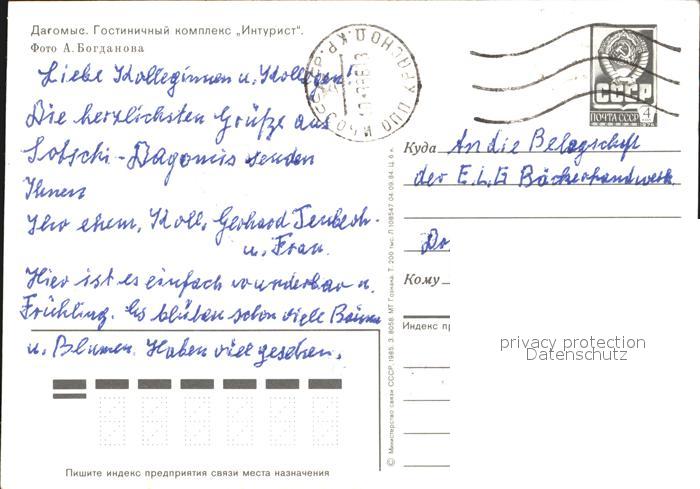 Дагомыс. Гостиничный комплекс „Интурист“.
Фото А. Богданова
Liebe Kolleginnen u. Kollegen!
Die herzlichsten Grüße aus
Sotschi-Dagomis senden
Ihnen
Ihr ehem. Koll. Gerhard
u. Frau.
Hier ist es einfach wunderbar u.
Frühling. Es blühen schon viele Bäume
u. Blumen. Haben viel gesehen.
Пишите индекс предприятия связи места назначения
© Министерство связи СССР, 1985. З. 8058. МТ Гознака. Т. 200 тыс. Л 108547 04.09.84. Ц. 6 к.
СССР
ПОЧТА СССР
4
Куда An die Belegschaft
der E.L.G Bäckerhandwerk
Dr
Кому
Индекс пр
privacy protection
Datenschutz